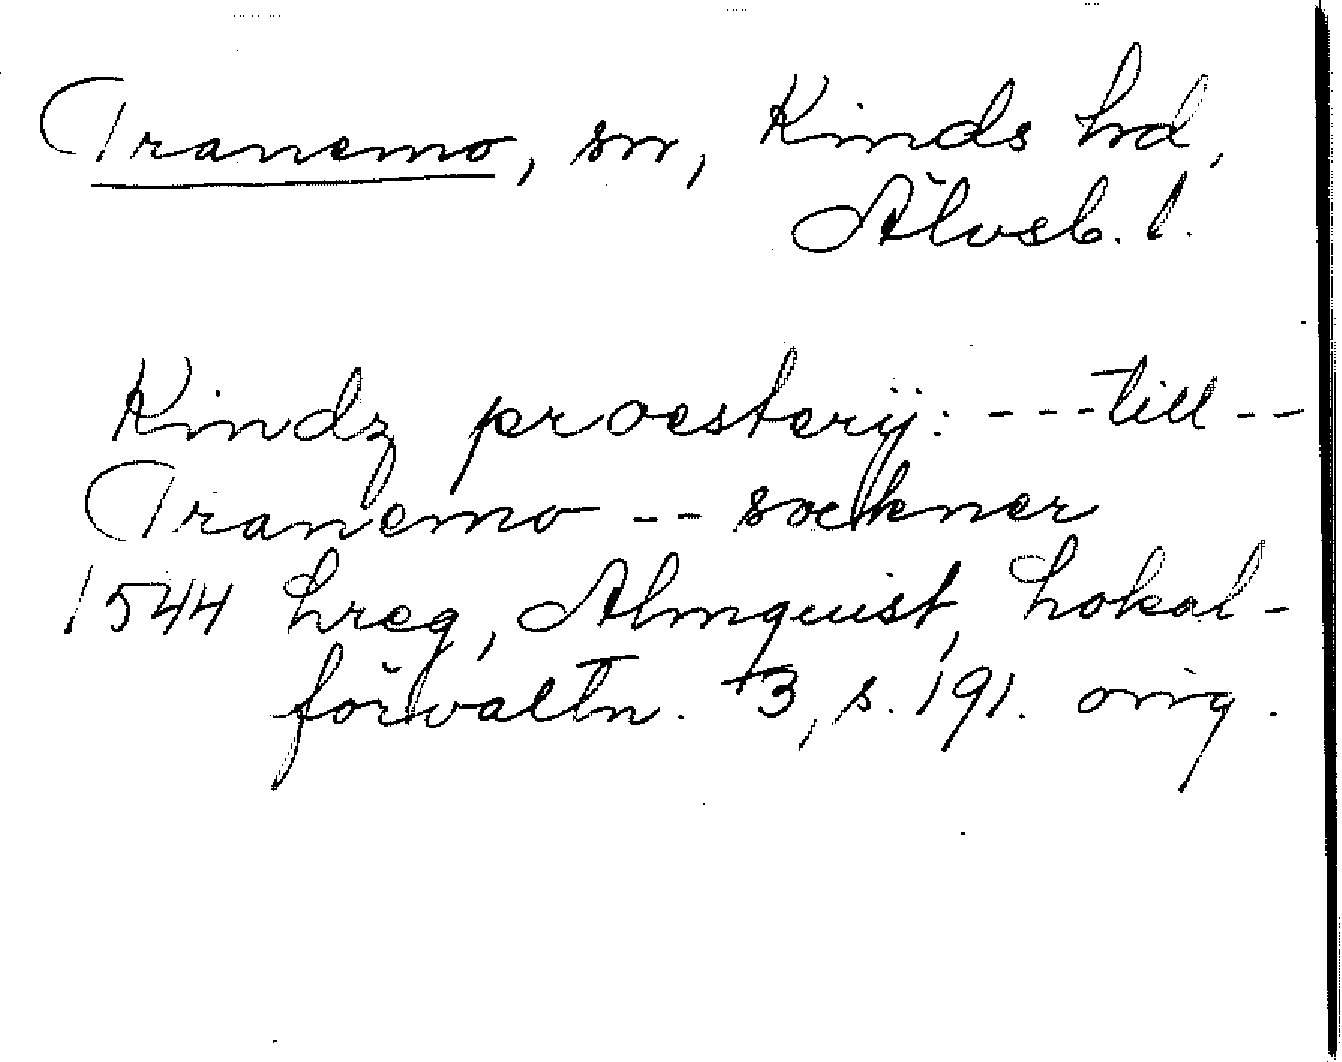 Tranemo, sn, Kinds hd,
Älvsb. l.
Kindz proesterij: - - - till - -
Tranemo - - soekner
1544 Lreg, Almquist, Lokal-
förvaltn. +3, s. 191. orig.